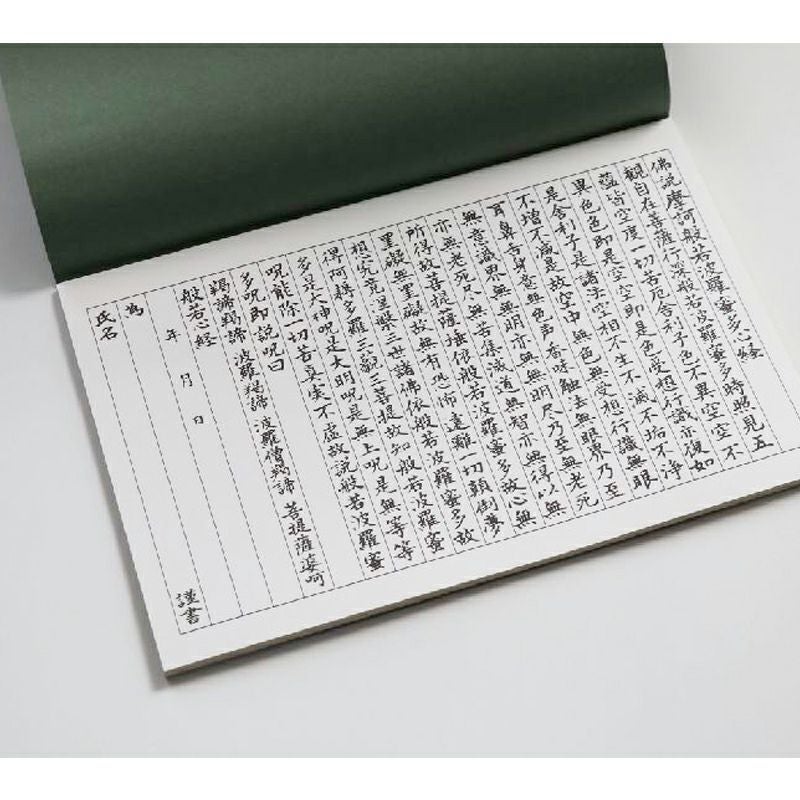 佛説摩訶般若波羅蜜多心経
観自在菩薩行深般若波羅蜜多時照見五
蘊皆空度一切苦厄舎利子色不異空空不
異色色即是空空即是色受想行識亦復如
是舎利子是諸法空相不生不滅不垢不浄
不増不減是故空中無色無受想行識無眼
耳鼻舌身意無色声香味触法無眼界乃至
無意識界無無明亦無無明尽乃至無老死
亦無老死尽無苦集滅道無智亦無得以無
所得故菩提薩埵依般若波羅蜜多故心無
罣礙無罣礙故無有恐怖遠離一切顛倒夢
想究竟涅槃三世諸佛依般若波羅蜜多故
得阿耨多羅三藐三菩提故知般若波羅蜜
多是大神呪是大明呪是無上呪是無等等
呪能除一切苦真実不虚故説般若波羅蜜
多呪即説呪曰
羯諦羯諦 波羅羯諦 波羅僧羯諦 菩提薩婆訶
般若心経
年 月 日
為
氏名 謹書